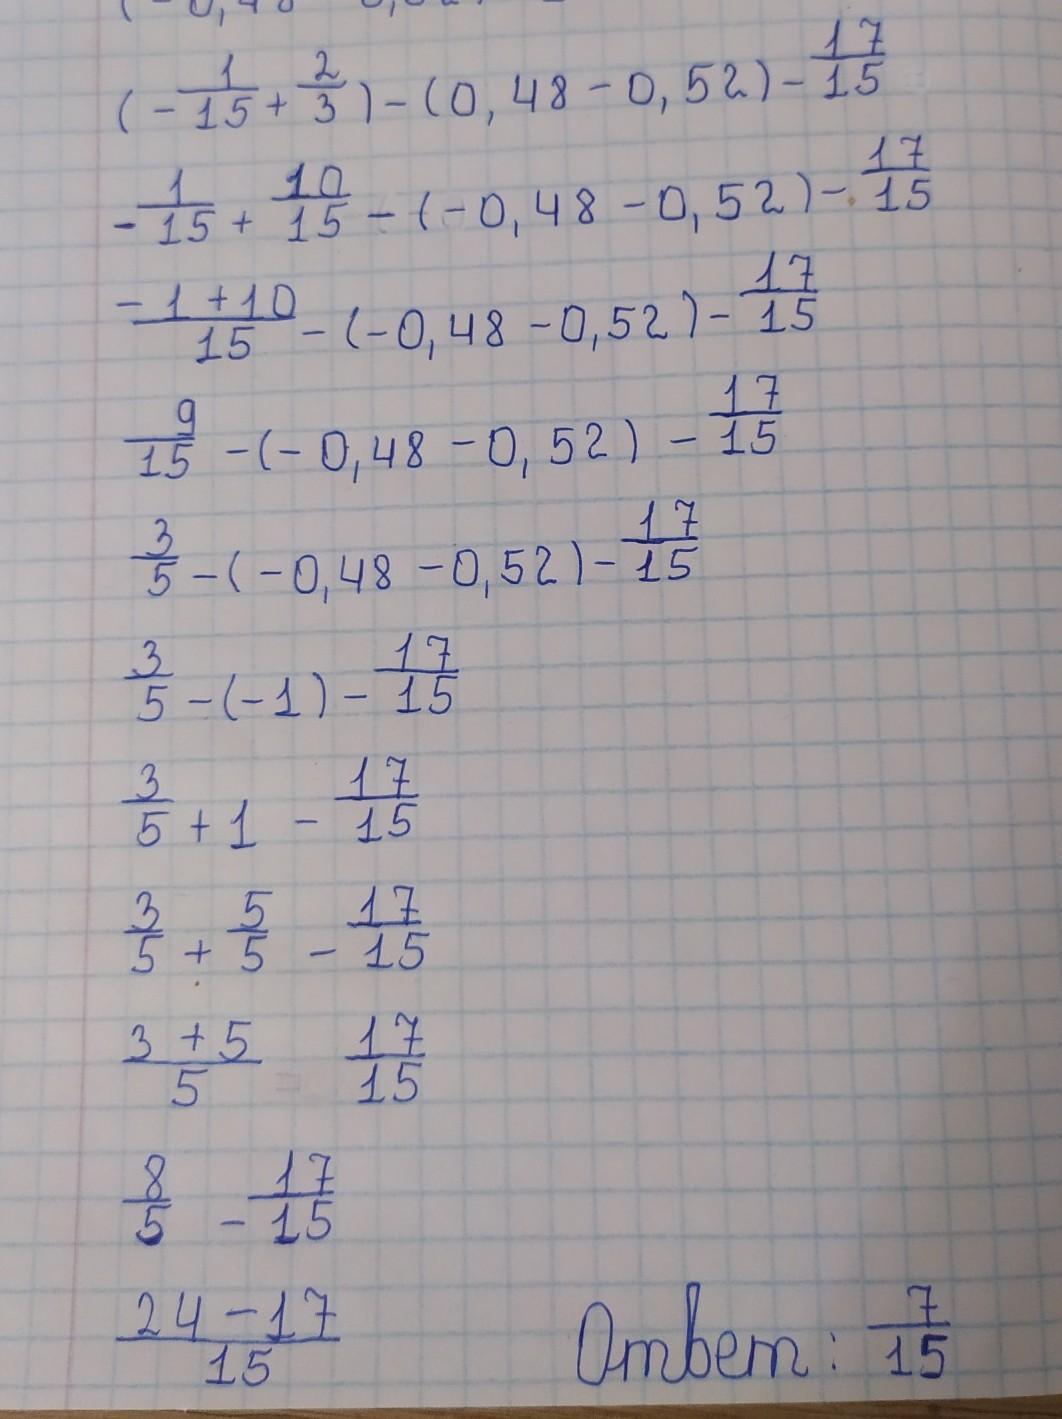 (-1/15 + 2/3) - (0,48 - 0,52) - 17/15
-1/15 + 10/15 - (-0,48 - 0,52) - 17/15
(-1+10)/15 - (-0,48 - 0,52) - 17/15
9/15 - (-0,48 - 0,52) - 17/15
3/5 - (-0,48 - 0,52) - 17/15
3/5 - (-1) - 17/15
3/5 + 1 - 17/15
3/5 + 5/5 - 17/15
(3+5)/5 17/15
8/5 - 17/15
(24-17)/15 Ответ: 7/15